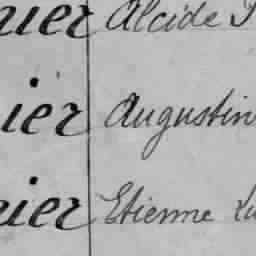 ier Alcide
ier Augustin
ier Etienne